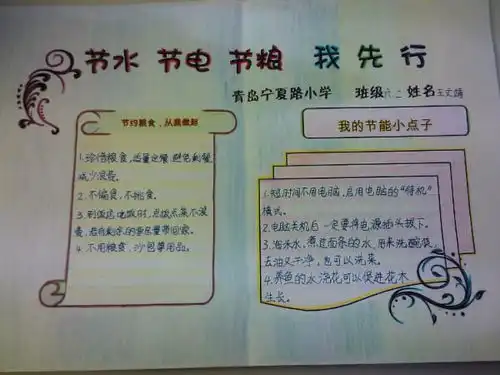 节水 节电 节粮 我先行
青岛宁夏路小学 班级六二 姓名王文
节约粮食，从我做起
1.珍惜粮食，适量定餐，避免剩餐
减少浪费。
2.不偏食，不挑食。
3.到饭店吃饭时，点饭点菜不浪
费，若有剩余的要尽量带回家。
4.不用粮食，沙包等用品。
我的节能小点子
1.短时间不用电脑，启用电脑的“待机”
模式。
2.电脑关机后一定要将电源插头拔下。
3.淘米水，煮过面条的水，用来洗碗筷，
去油又干净，也可以洗菜。
4.养鱼的水浇花可以促进花木
生长。